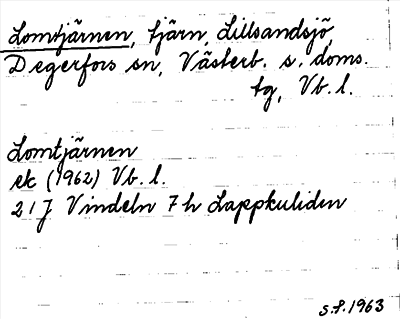 Lomtjärnen, tjärn, Lillsandsjö,
Degerfors sn, Västerb. s. doms.
tg, Vb. l.
Lomtjärnen
ek (1962) Vb. l.
21J Vindeln 7h Lappkuliden
S.P. 1963